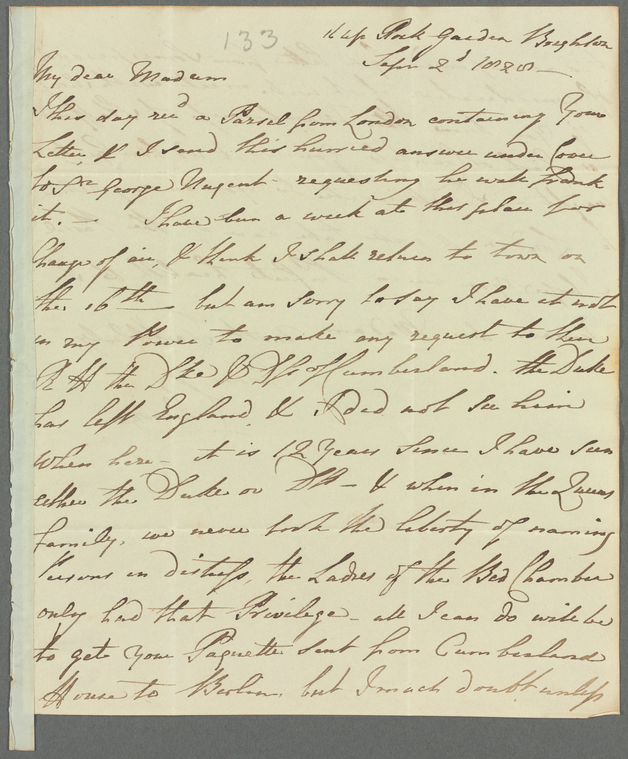 133
Park Garden Brighton
Sepr 2d 1828 —
My dear Madam
This day recd a Parsel from London containing Your
Letter, & I send this hurried answer under Cover
to Sr George Nugent - requesting he will Frank
it. — I have been a week at this place for
Change of air, & think I shall return to town on
the 16th — but am sorry to say I have it not
in my Power to make any request to their
R H the Dke & Dss of Cumberland. the Duke
has left England, & I did not see him
when here - it is 12 Years since I have seen
either the Duke or Dss - & when in the Queens
family, we never took the liberty of naming
Persons in distress, the Ladies of the Bed Chamber
only had that Privilege - all I can do will be
to get Your Paquette sent from Cumberland
House to Berlin, but I much doubt unless